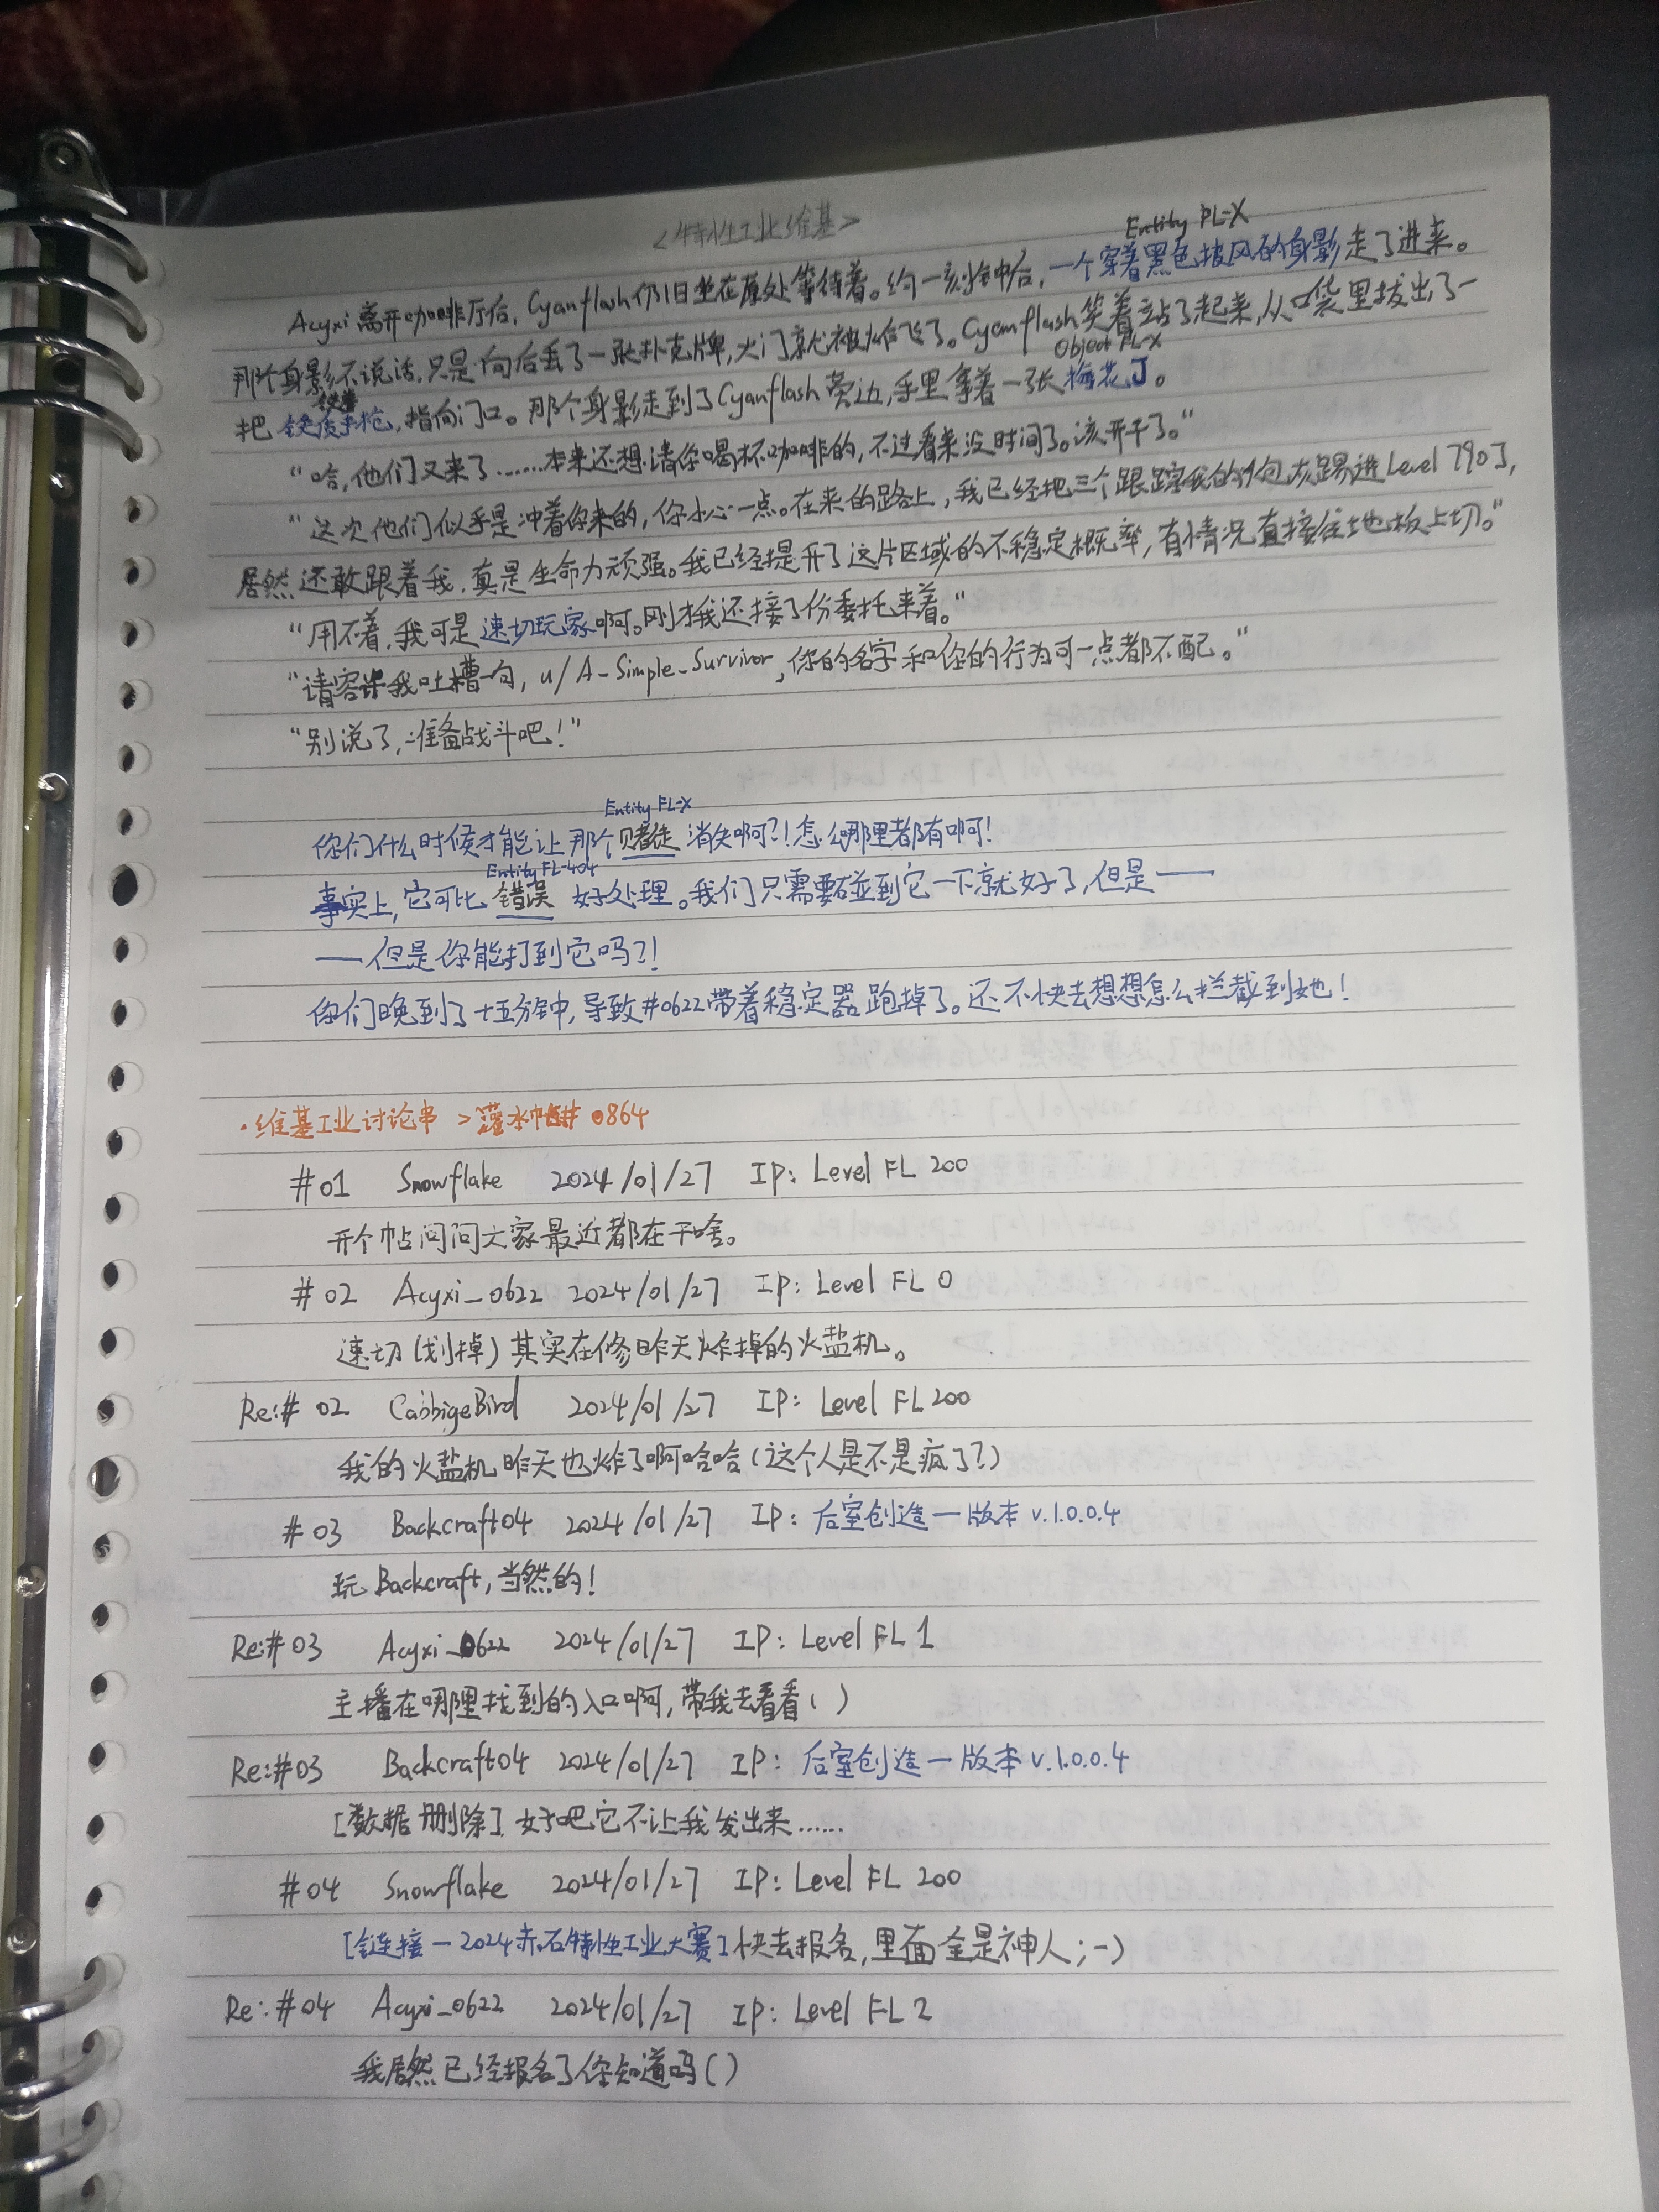 <特性工业维基>
Entity PL-X
Acyxi离开咖啡厅后，Cyanflash仍旧坐在原处等待着。约一刻钟后，一个穿着黑色披风的身影走了进来。
那个身影不说话，只是向后丢了一张扑克牌，大门就被炸飞了。Cyanflash笑着站了起来，从口袋里拔出了一
Object PL-X
把铁质手枪，指向门口。那个身影走到了Cyanflash旁边，手里拿着一张梅花J。
“哈，他们又来了……本来还想请你喝杯咖啡的，不过看来没时间了。该开干了。”
“这次他们似乎是冲着你来的，你小心一点。在来的路上，我已经把三个跟踪我的家伙踢进Level 790了，
居然还敢跟着我，真是生命力顽强。我已经提升了这片区域的不稳定概率，有情况直接往地板上切。”
“用不着，我可是速切玩家啊。刚才我还接了份委托来着。”
“请容许我吐槽一句，u/A-Simple-Survivor，你的名字和你的行为可一点都不配。”
“别说了，准备战斗吧！”
Entity FL-X
你们什么时候才能让那个赌徒消失啊？！怎么哪里都有啊！
Entity FL-404
事实上，它可比错误好处理。我们只需要碰到它一下就好了，但是——
——但是你能打到它吗？！
你们晚到了十五分钟，导致#0622带着稳定器跑掉了。还不快去想想怎么拦截到她！
·维基工业讨论串 >灌水帖# 0864
#01 Snowflake 2024/01/27 IP: Level FL 200
开个帖问问大家最近都在干啥。
#02 Acyxi_0622 2024/01/27 IP: Level FL 0
速切(划掉)其实在修昨天炸掉的火盐机。
Re:# 02 CabbigeBird 2024/01/27 IP: Level FL 200
我的火盐机昨天也炸了啊哈哈(这个人是不是疯了？)
#03 Backcraft04 2024/01/27 IP: 后室创造—版本 v.1.0.0.4
玩Backcraft，当然的！
Re:#03 Acyxi_0622 2024/01/27 IP: Level FL 1
主播在哪里找到的入口啊，带我去看看( )
Re:#03 Backcraft04 2024/01/27 IP: 后室创造—版本 v.1.0.0.4
[数据删除] 好吧它不让我发出来……
#04 Snowflake 2024/01/27 IP: Level FL 200
[链接—2024赤石特性工业大赛]快去报名，里面全是神人；-)
Re:#04 Acyxi_0622 2024/01/27 IP: Level FL 2
我居然已经报名了你知道吗( )